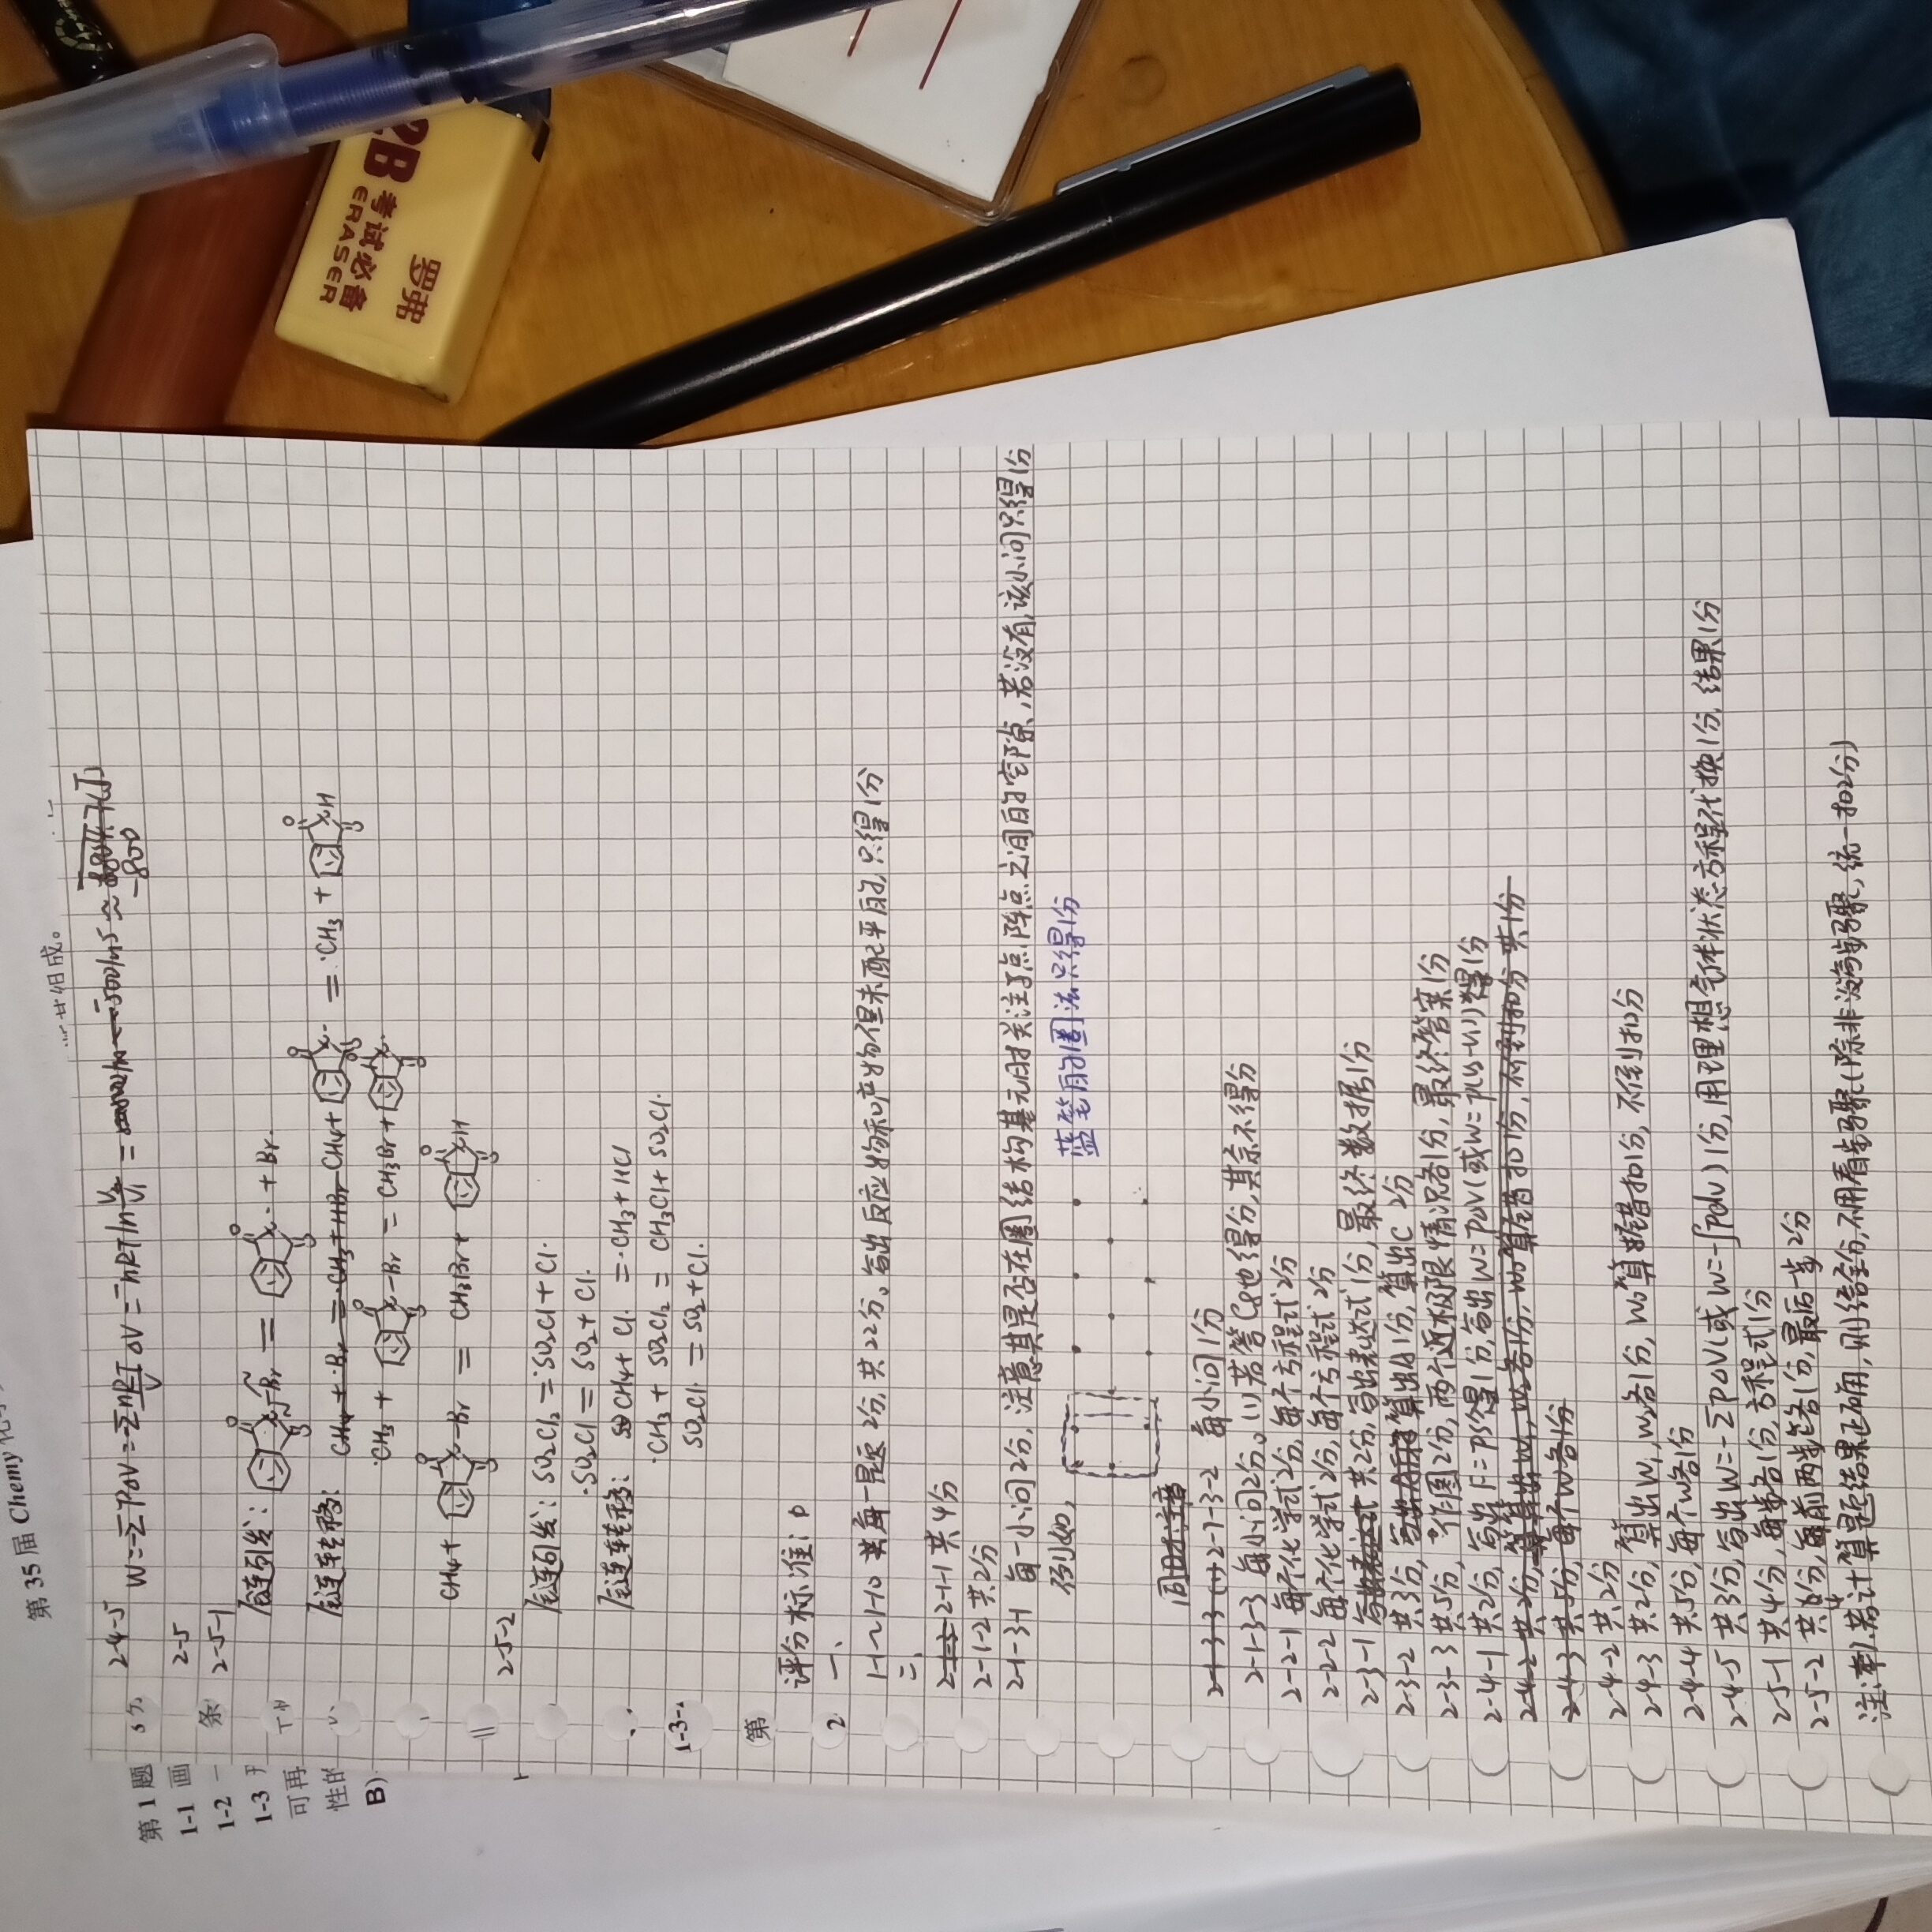 第 35 届 Chemy 化学
成。
第 1 题
1-1 画
1-2
1-3
可再
性的
B)
条
1-3-
第
2
2-4-5 W=-∑PΔV=-∑nRT/V ΔV=-nRT ln V₂/V₁ = -500 ln5 ≈ -800
2-5
2-5-1
链引发:
N-Br = N· + Br·
链转移: CH₄ + ·Br = ·CH₃ + HBr CH₄ + N· = ·CH₃ + NH
·CH₃ + N-Br = CH₃Br + N·
CH₄ + N-Br = CH₃Br + NH
2-5-2
链引发: SO₂Cl₂ = ·SO₂Cl + Cl·
·SO₂Cl = SO₂ + Cl·
链转移: CH₄ + Cl· = ·CH₃ + HCl
·CH₃ + SO₂Cl₂ = CH₃Cl + SO₂Cl·
SO₂Cl· = SO₂ + Cl·
评分标准:
一、
1-1~1-10 每一题 2分, 共22分。写出反应物和产物但未配平的, 只得1分
二、
2-1-1 共4分
2-1-2 共2分
2-1-3-1 每一小问2分, 注意其是否在圈结构基元时关注了点阵点之间的空隙, 若没有, 该小问只得1分
例如, 蓝笔的圈法只得1分
2-1-3-2 每小问1分
2-1-3-3 每小问2分。(1)若答C₈也得分, 其余不得分
2-2-1 每个化学式2分, 每个方程式2分
2-2-2 每个化学式2分, 每个方程式2分
2-3-1 共2分, 写出表达式1分, 最终数据1分
2-3-2 共3分, 算出1分, 算出C 2分
2-3-3 共5分, 作图2分, 两个近极限情况各1分, 最终答案1分
2-4-1 共2分, 写出F=PS得1分, 写出W=PΔV(或W=P(V₂-V₁))得1分
2-4-2 共2分, W₁, W₂各1分, W₀算错扣1分, 不倒扣分 共1分
2-4-3 共5分, 每个W各1分
2-4-2 共2分
2-4-3 共2分, 算出W₁, W₂各1分, W₀算错扣1分, 不倒扣分
2-4-4 共5分, 每个W各1分
2-4-5 共3分, 写出W=-∑PΔV(或W=-∫pdv)1分, 用理想气体状态方程代换1分, 结果1分
2-5-1 共4分, 每步各1分, 方程式1分
2-5-2 共4分, 前两步各1分, 最后一步2分
注: 1. 若计算题结果正确, 则给全分, 不用看步骤(除非没写步骤, 统一扣2分)
2B
考试必备
ERASER
罗弗